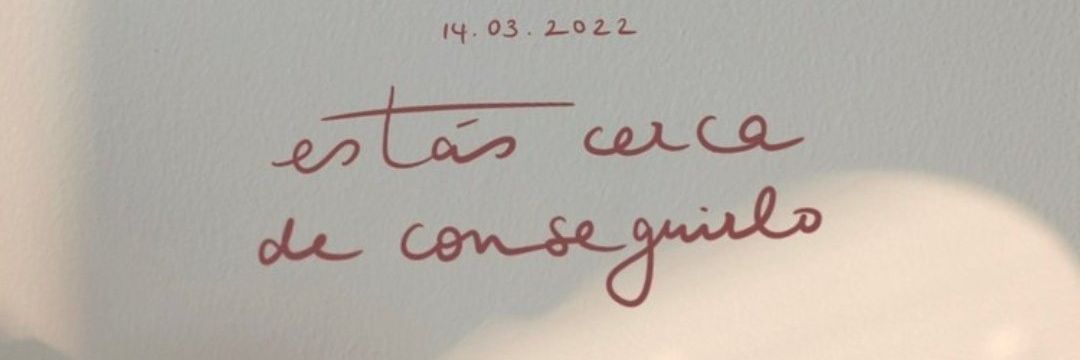 14.03.2022
estás cerca
de conseguirlo